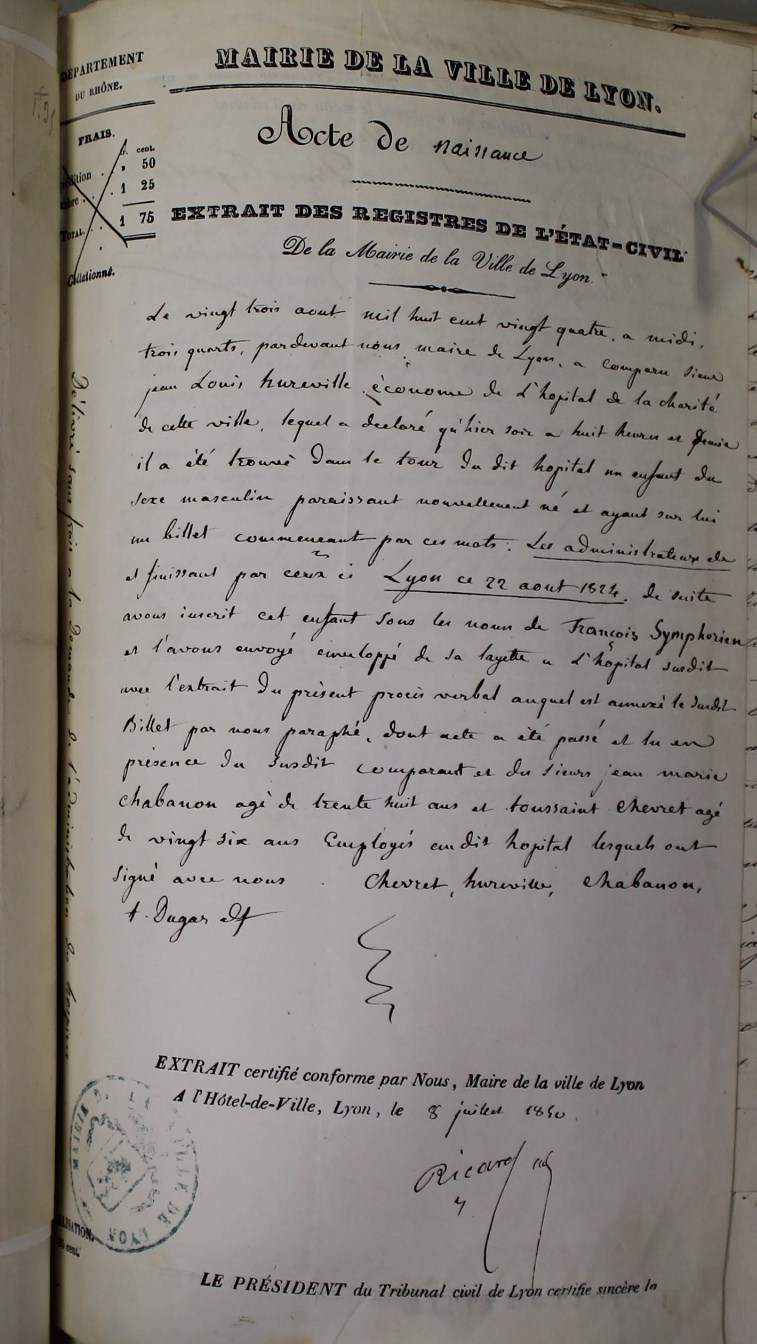 DÉPARTEMENT
DU RHÔNE.
MAIRIE DE LA VILLE DE LYON.
FRAIS.
f. cent.
50
1 25
TOTAL. 1 75
Collationné.
Acte de naissance
EXTRAIT DES REGISTRES DE L'ÉTAT-CIVIL
De la Mairie de la Ville de Lyon
Le vingt trois aout mil huit cent vingt quatre, a midi,
trois quarts, pardevant nous, maire de Lyon, a comparu sieur
jean Louis hureville, économe de L'hopital de la charité
de cette ville, lequel a declaré qu'hier soir a huit heures et demie
il a été trouvé dans le tour du dit hopital un enfant du
sexe masculin paraissant nouvellement né et ayant sur lui
un billet commencant par ces mots : Les administrateurs de
et finissant par ceux ci Lyon ce 22 aout 1824. de suite
avons inscrit cet enfant sous les noms de François Symphorien
et l'avons envoyé enveloppé de sa layette a L'hopital susdit
avec l'extrait du présent procès verbal auquel est annexé le susdit
Billet par nous paraphé, dont acte a été passé et lu en
présence du susdit comparant et des sieurs jean marie
chabanon agé de trente huit ans et toussaint chevret agé
de vingt six ans Employés au dit hopital lesquels ont
signé avec nous . Chevret, hureville, chabanon,
t. Dugas
Délivré sans frais a la demande de l'administration des hospices
EXTRAIT certifié conforme par Nous, Maire de la ville de Lyon
A l'Hôtel-de-Ville, Lyon, le 8 juillet 1850
Ricard
VILLE DE LYON
LE PRÉSIDENT du Tribunal civil de Lyon certifie sincère la